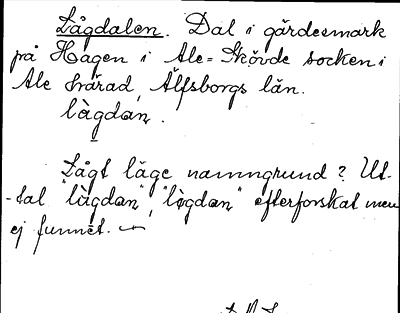 Lågdalen. Dal i gärdesmark
på Hagen i Ale-Skövde socken i
Ale härad, Älfsborgs län.
làgdan.
Lågt läge namngrund? Ut-
-tal "làgdan", "lògdan" efterforskat men
ej funnet.